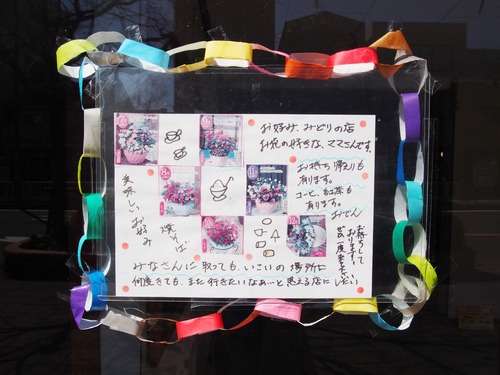 お好み、みどりの店
お花の好きな、ママさんです、
お持ち帰えりも
有ります。
コーヒ、紅茶も
有ります。
おでん
美味しい
お好み
焼そば
お待ちして
おります、
みなさんに取っても、いこいの場所に
何度きても、また行きたいなぁーと思える店にしたい